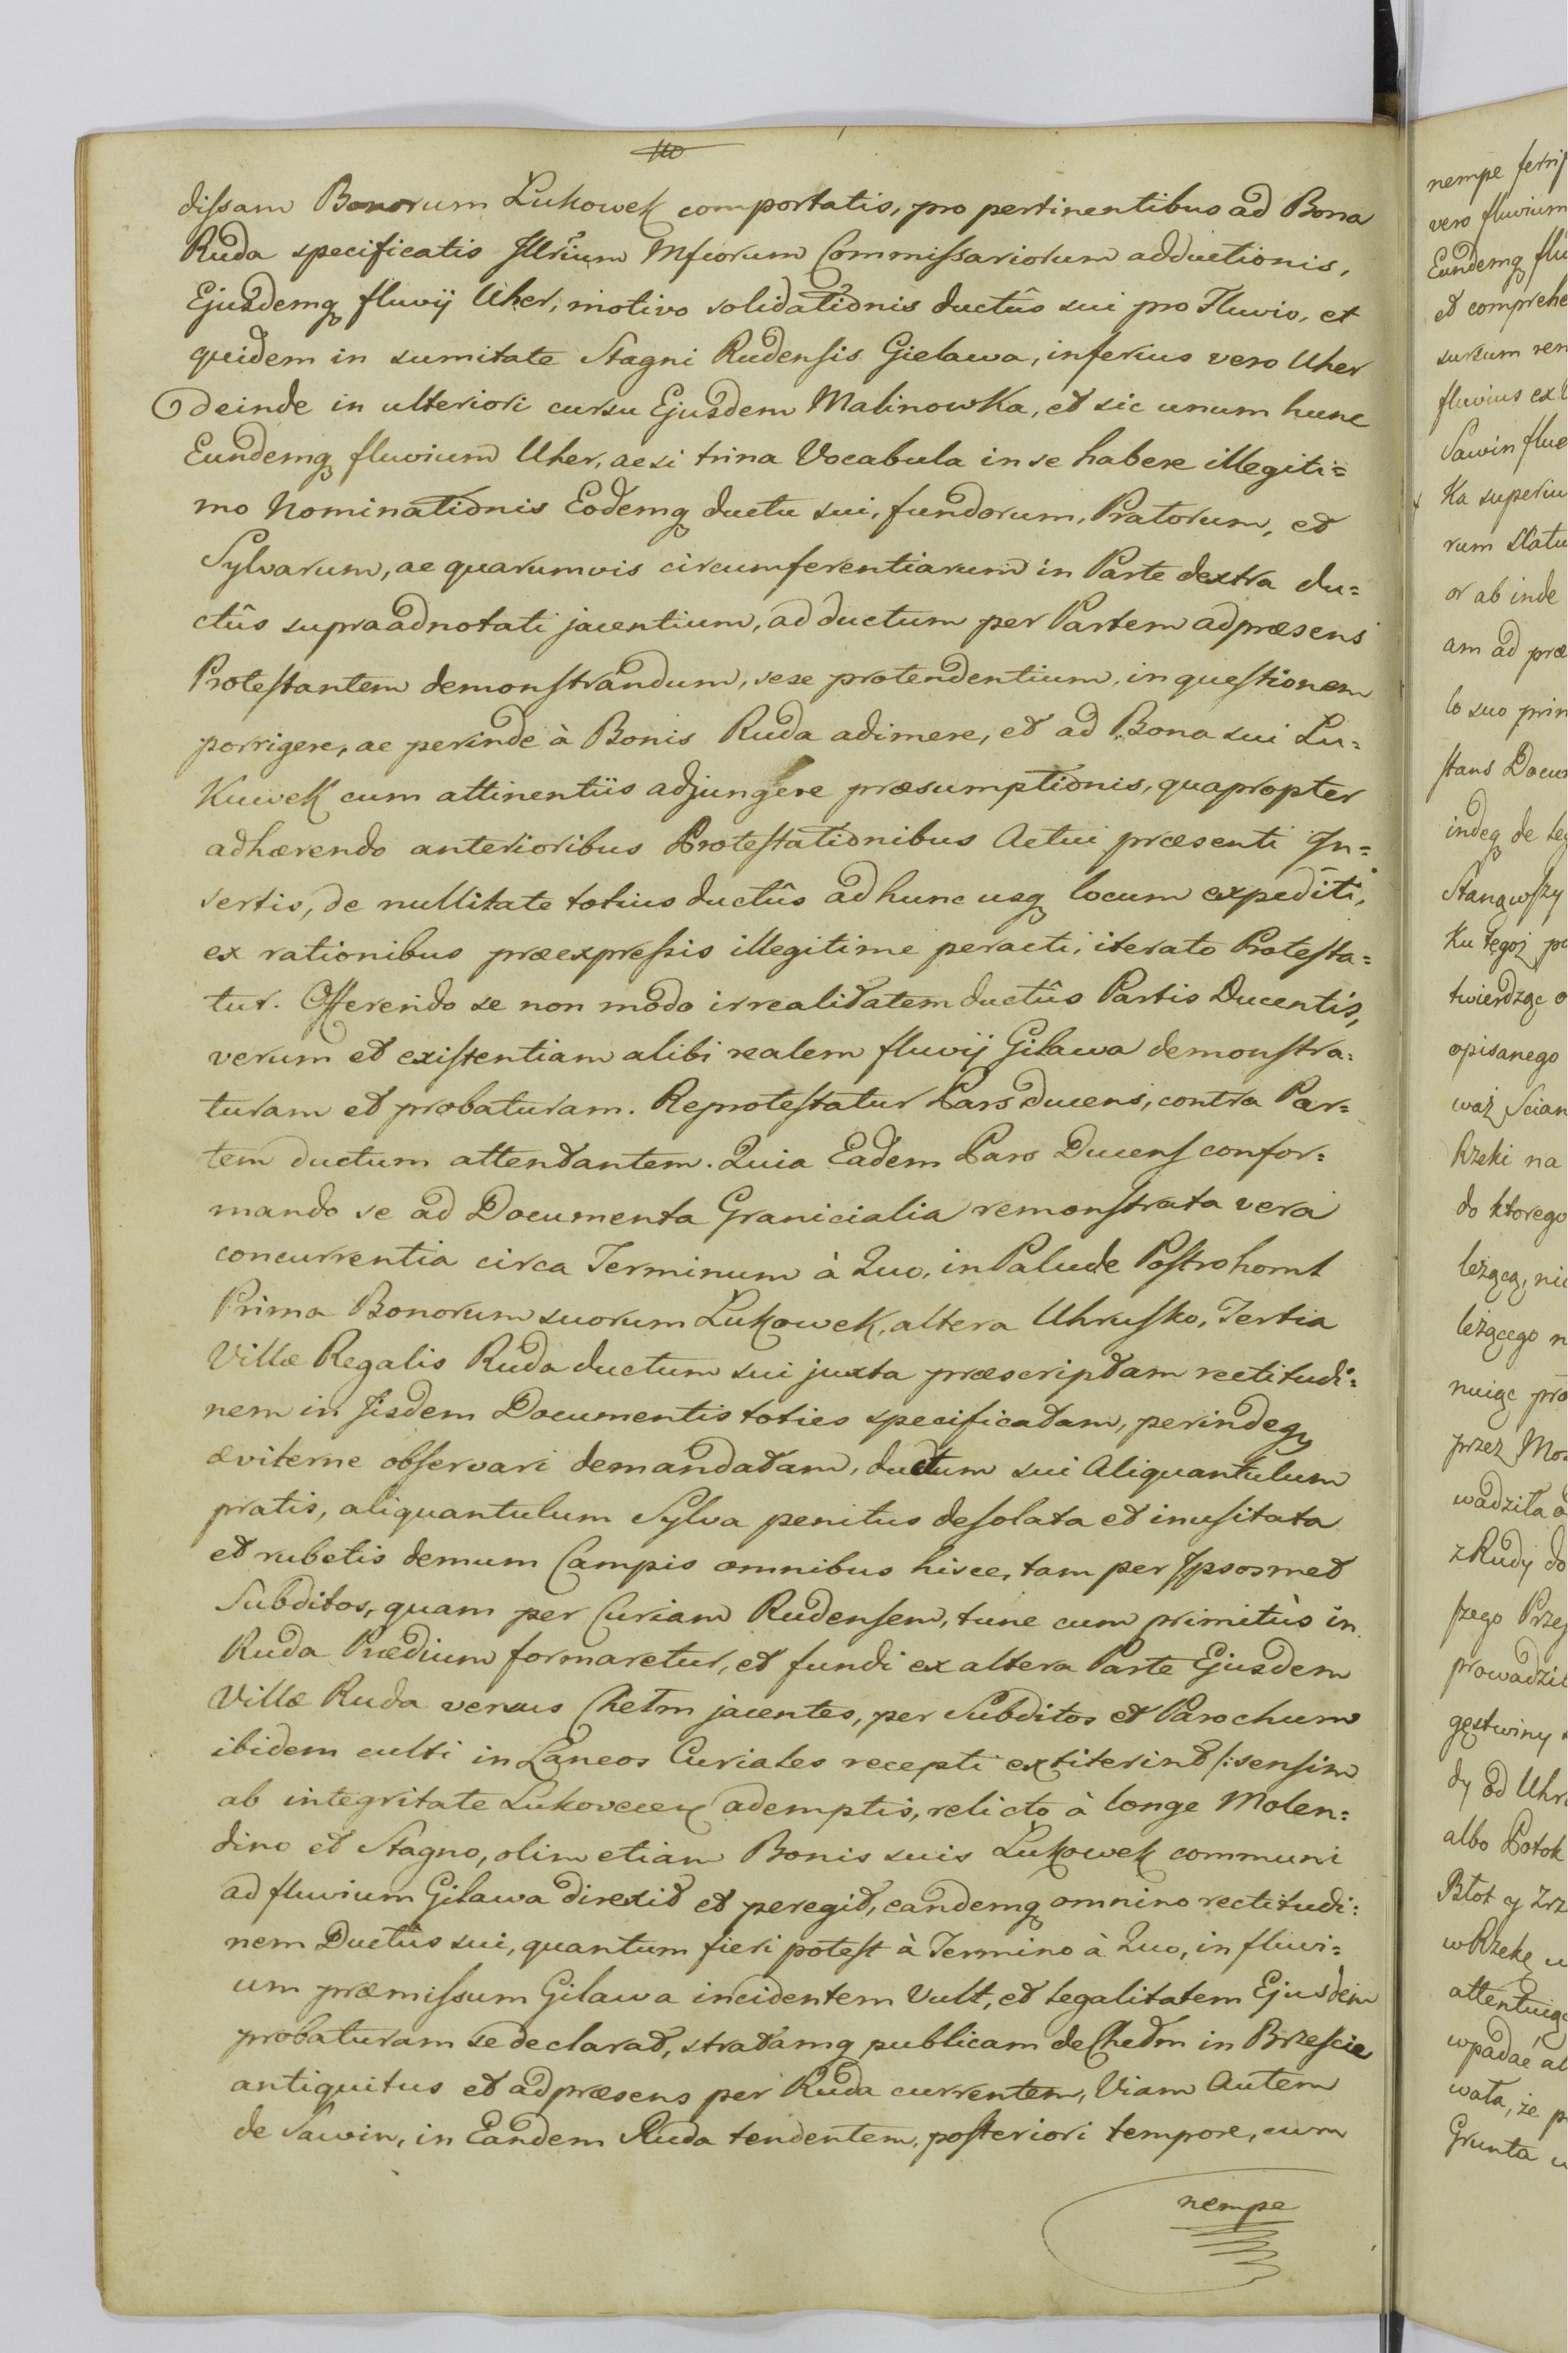 110
dissam Bonorum Lukowek comportatis, pro pertinentibus ad Bona
Ruda specificatis Illrium Mfcorum Commissariorum adductionis,
Ejusdemq fluvij Uher, motivo solidationis ductûs sui pro Fluvio, et
quidem in sumitate Stagni Rudensis Gielawa, inferius vero Uher
deinde in ulteriori cursu Ejusdem Malinowka, et sic unum hunc
Eundemq fluvium Uher, acsi trina Vocabula in se habere illegiti=
mo Nominationis Eodemq ductu sui, fundorum, Pratorum, et
Sylvarum, ac quarumvis circumferentiarum in Parte dextra du=
ctûs supraadnotati jacentium, ad ductum per Partem ad præsens
Protestantem demonstrandum, sese protendentium, in questionem
porrigere, ac perinde à Bonis Ruda adimere, et ad Bona sui Lu=
kuwek cum attinentiis adjungere præsumptionis, quapropter
adhærendo anterioribus Protestationibus Actui præsenti In=
sertis, de nullitate totius ductûs ad hunc usq locum expediti,
ex rationibus præexpressis illegitime peracti, iterato Protesta=
tur. Offerendo se non modo irrealitatem ductûs Partis Ducentis,
verum et existentiam alibi realem fluvij Gilawa demonstra=
turam et probaturam. Reprotestatur Pars Ducens, contra Par=
tem ductum attentantem. Quia Eadem Pars Ducens confor=
mando se ad Documenta Granicialia remonstrata vera
concurrentia circa Terminum à Quo, in Palude Postrohomt
Prima Bonorum suorum Lukowek, altera Uhrusko, Tertia
Villæ Regalis Ruda ductum sui juxta præscriptam rectitudi=
nem in Iisdem Documentis toties specificatam, perindeq
æviterne observari demandatam, ductum sui Aliquantulum
pratis, aliquantulum Sylva penitus desolata et inusitata
et rubetis demum Campis omnibus hisce, tam per Ipsosmet
Subditos, quam per Curiam Rudensem, tunc cum primitùs in
Ruda Prædium formaretur, et fundi ex altera Parte Ejusdem
Villæ Ruda versus Chełm jacentes, per Subditos et Parochum
ibidem culti in Laneos Curiales recepti extiterint /: sensim
ab integritate ademptis, relicto à longe Molen=
dino et Stagno, olim etiam Bonis suis Lukowek communi
ad fluvium Gilawa direxit et peregit, eandemq omnino rectitudi=
nem Ductûs sui, quantum fieri potest à Termino à Quo, in fluvi=
um præmissum Gilawa incidentem Vult, et legalitatem Ejusdem
probaturam se declarat, stratamq publicam de Chełm in Brzescie
antiquitus et ad præsens per Ruda currentem, Viam Autem
de Sawin, in Eandem Ruda tendentem, posteriori tempore, cum
nempe
nempe
vero fluvium
Eundemq flu
et comprehe
sursum
fluvius ex
Sawin flue
ka superiu
rum statu
or ab inde
am ad præ
lo suo prin
stans Docu
indeq de leg
Stanąwszy
Ku tegoż po
twierdząc o
opisanego
waż Scian
Rzeki na
do ktorego
leżącą, nie
leżącego n
nuiąc pro
przez Mo
wadziła
z Rudy do
szego Prze
prowadzil
gęstwiny
dy od Uhr
albo Potok
Błot y Zrz
w Rzekę w
attentuiąc
wpadać al
wała, że p
Grunta w